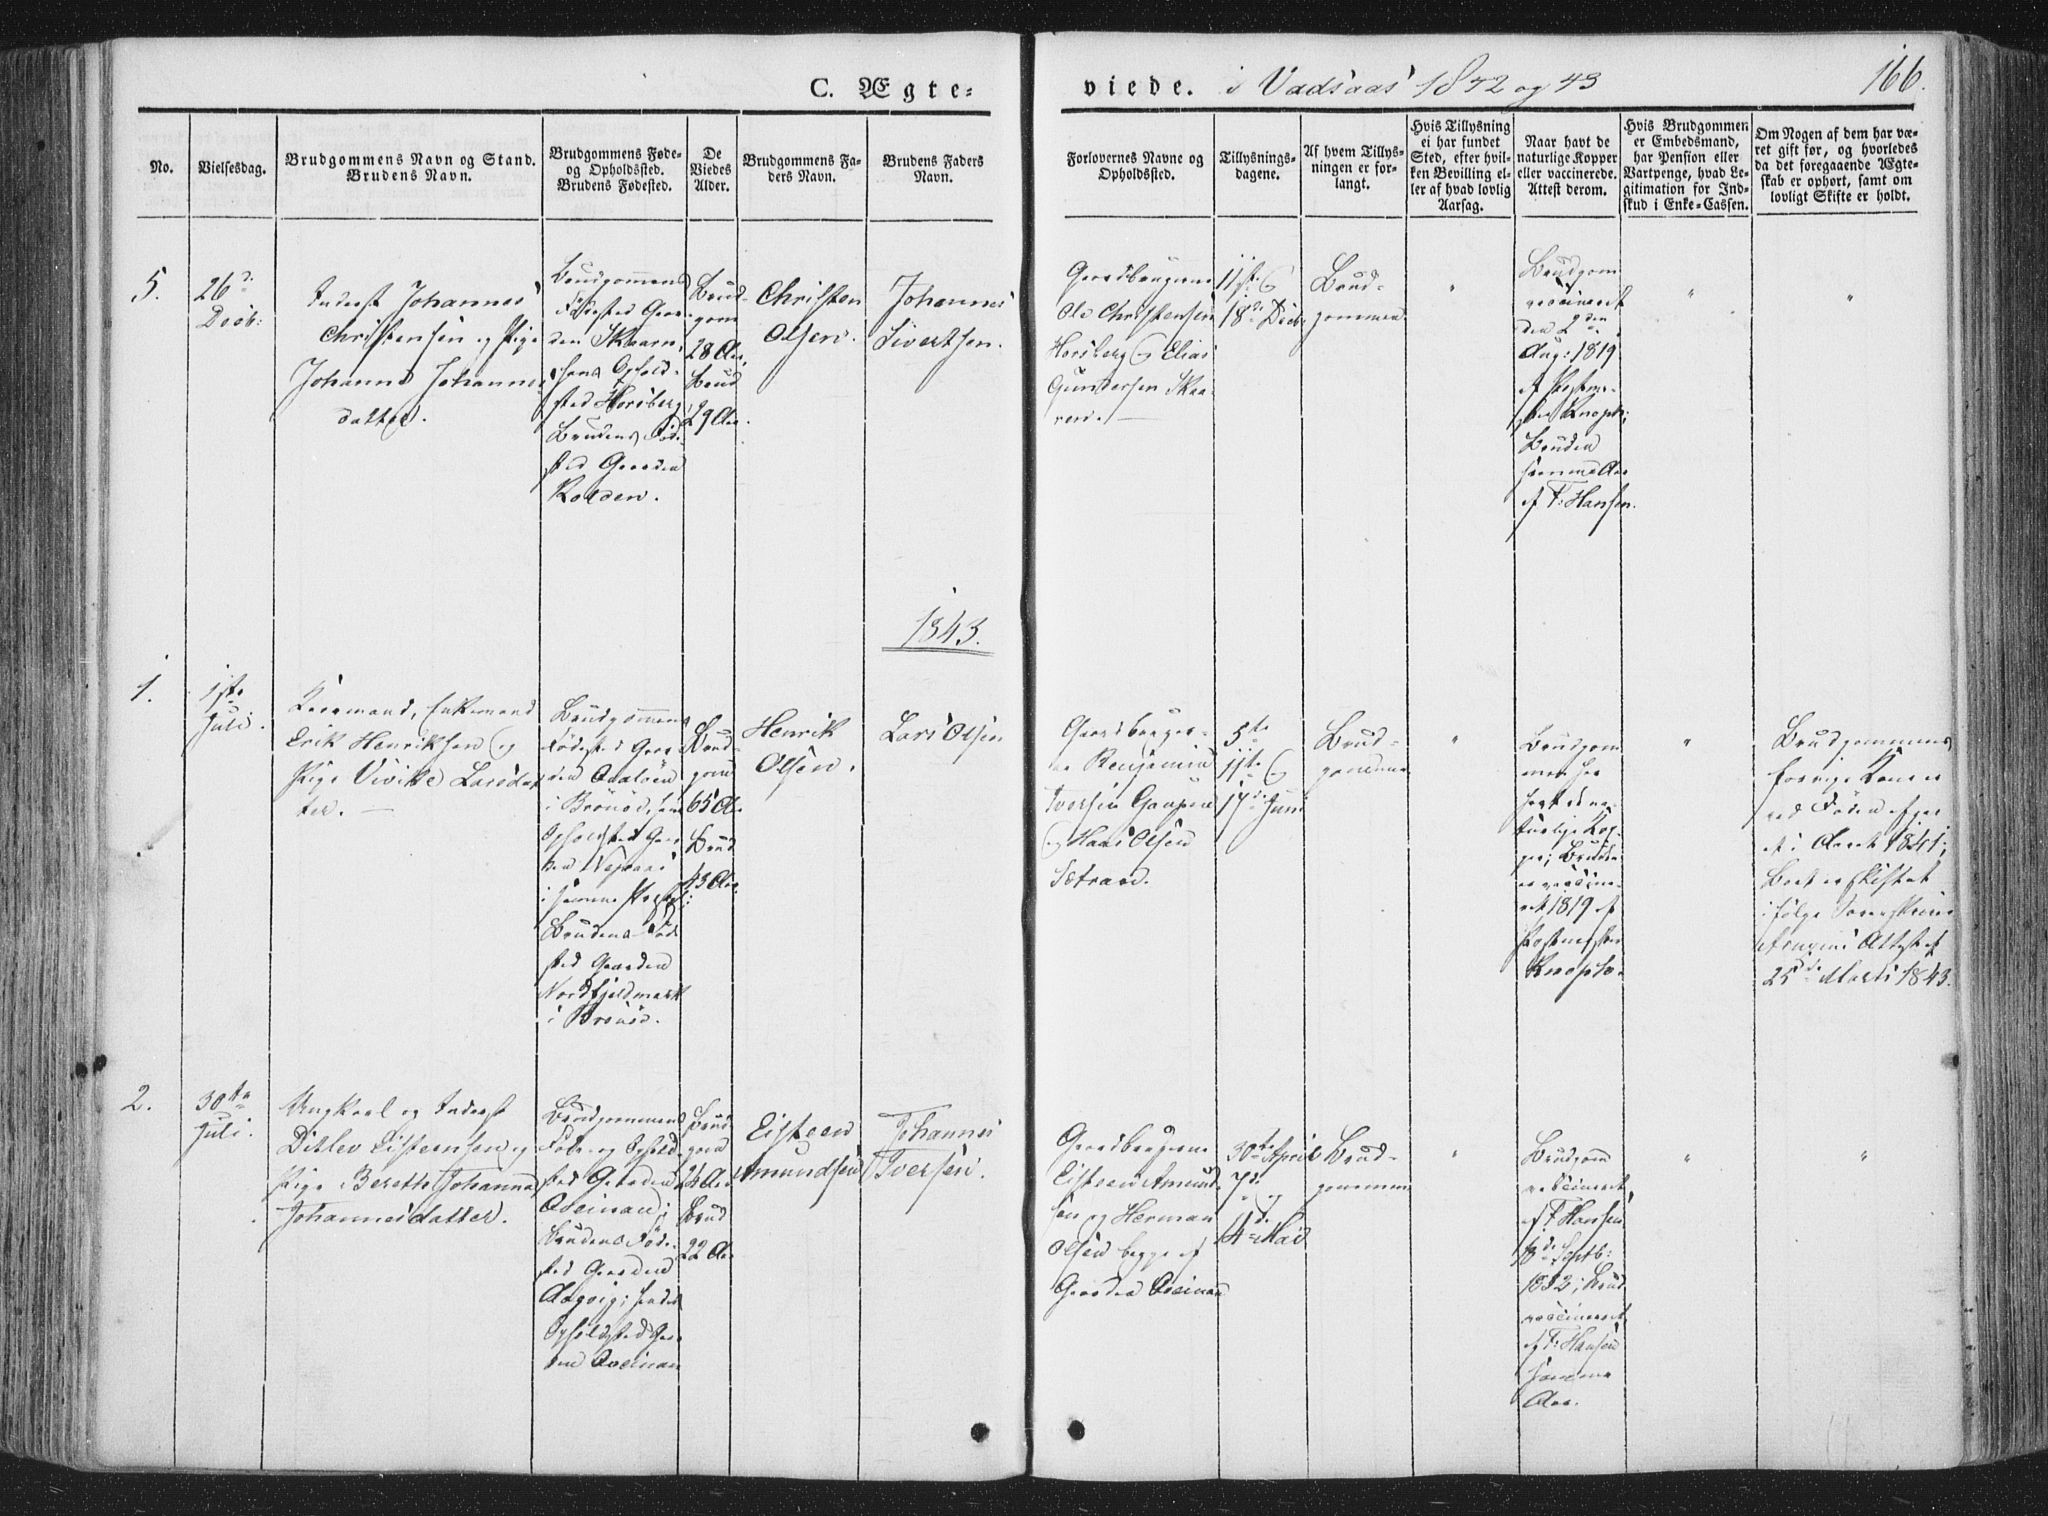 C. Ægte-
viede. i Vadsaas 1842 og 43
166.
No.
Vielsesdag.
Brudgommens Navn og Stand.
Brudens Navn.
Brudgommens Føde-
og Opholdsted.
Brudens Fødested.
De
Viedes
Alder.
Brudgommens Fa-
ders Navn.
Brudens Faders
Navn.
Forlovernes Navne og
Opholdsted.
Tillysnings-
dagene.
Af hvem Tillys-
ningen er for-
langt.
Hvis Tillysning
ei har fundet
Sted, efter hvil-
ken Bevilling el-
ler af hvad lovlig
Aarsag.
Naar havt de
naturlige Kopper
eller vaccinerede.
Attest derom.
Hvis Brudgommen
er Embedsmand,
har Pension eller
Vartpenge, hvad Le-
gitimation for Ind-
skud i Enke-Cassen.
Om Nogen af dem har væ-
ret gift før, og hvorledes
da det foregaaende Ægte-
skab er ophørt, samt om
lovligt Skifte er holdt.
5.
26d.
Decb:
Inderst Johannes
Christensen og Pige
Johanna Johannes
datter.
Brudgommens
Fødested Gaar-
den Skaarn,
hans Ophold-
sted Horsberg
Brudens Føde-
sted Gaarden
Kolden.
Brud-
gom
28 Aar
Brud
29 Aar.
Christen
Olsen.
Johannes
Sivertsen.
Gaardbrugerne
Ole Christensen
Horsberg og Elias
Gundersen Skaa-
ren.
11te og
18de Decbr
Brud-
gommen
"
Brudgom
vaccineret
den 2den
Aug: 1819
af Postme-
ster Knoph;
Bruden
samme Aar
af F: Hansen.
"
"
1843.
1.
1ste
Juli.
Enkemand
Erik Henriksen og
Pige Vivike Larsdat
ter.
Brudgommens
Fødested Gaar
den
i Brønø, hans
Opholdsted Gaar
den
i samme Præstegj:
Brudens Føde
sted Gaarden
Nordfjeldmark
i Brønø.
Brud-
gom
65 Aar
Brud
43 Aar.
Henrik
Olsen.
Lars Olsen
Gaardbruger-
ne Benjamin
Iversen
og Hans Olsen
Sætran.
5te
11te og
17de Juni
Brud-
gommen
"
Brudgom
men har
havt de na-
turlige Kop-
per; Bruden
er vaccine-
ret 1819 af
Postmester
Knoph.
"
Brudgommens
forrige Kone er
ved Døden afgaa-
et i Aaret 1841;
Boet er skiftet
ifølge Sorenskriver
Attest af
25de Marts 1843.
2.
30te
Juli.
Ungkarl og Inderst
Ditlev Eisteensen og
Pige Bereth Johanna
Johannesdatter.
Brudgommens
Føde- og Ophold-
sted Gaarden
Qveinan;
Brudens Føde-
sted Gaarden
hendes
Opholdsted Gaar
den Qveinan
Brud
gom
24 Aar
Brud
22 Aar
Eisteen
Amundsen
Johannes
Iversen.
Gaardbrugerne
Eisteen Amund
sen og Herman
Olsen begge af
Gaarden Qveinan
30te April
7de og
14de Mai
Brud-
gommen
"
Brudgom
vaccineret
af F: Hansen
18de Septb:
1832; Brud
vaccineret
af F: Hansen
samme
Aar.
"
"